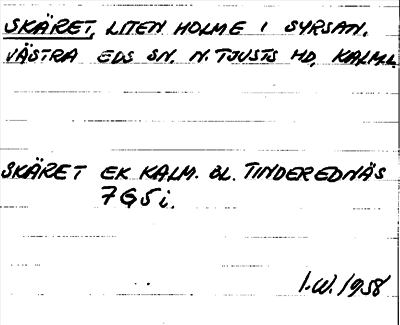 SKÄRET, LITEN HOLME I SYRSAN.
VÄSTRA EDS SN. N. TJUSTS HD, KALM.L
SKÄRET EK KALM. BL. TINDEREDNÄS
7G5i.
I.W. 1958